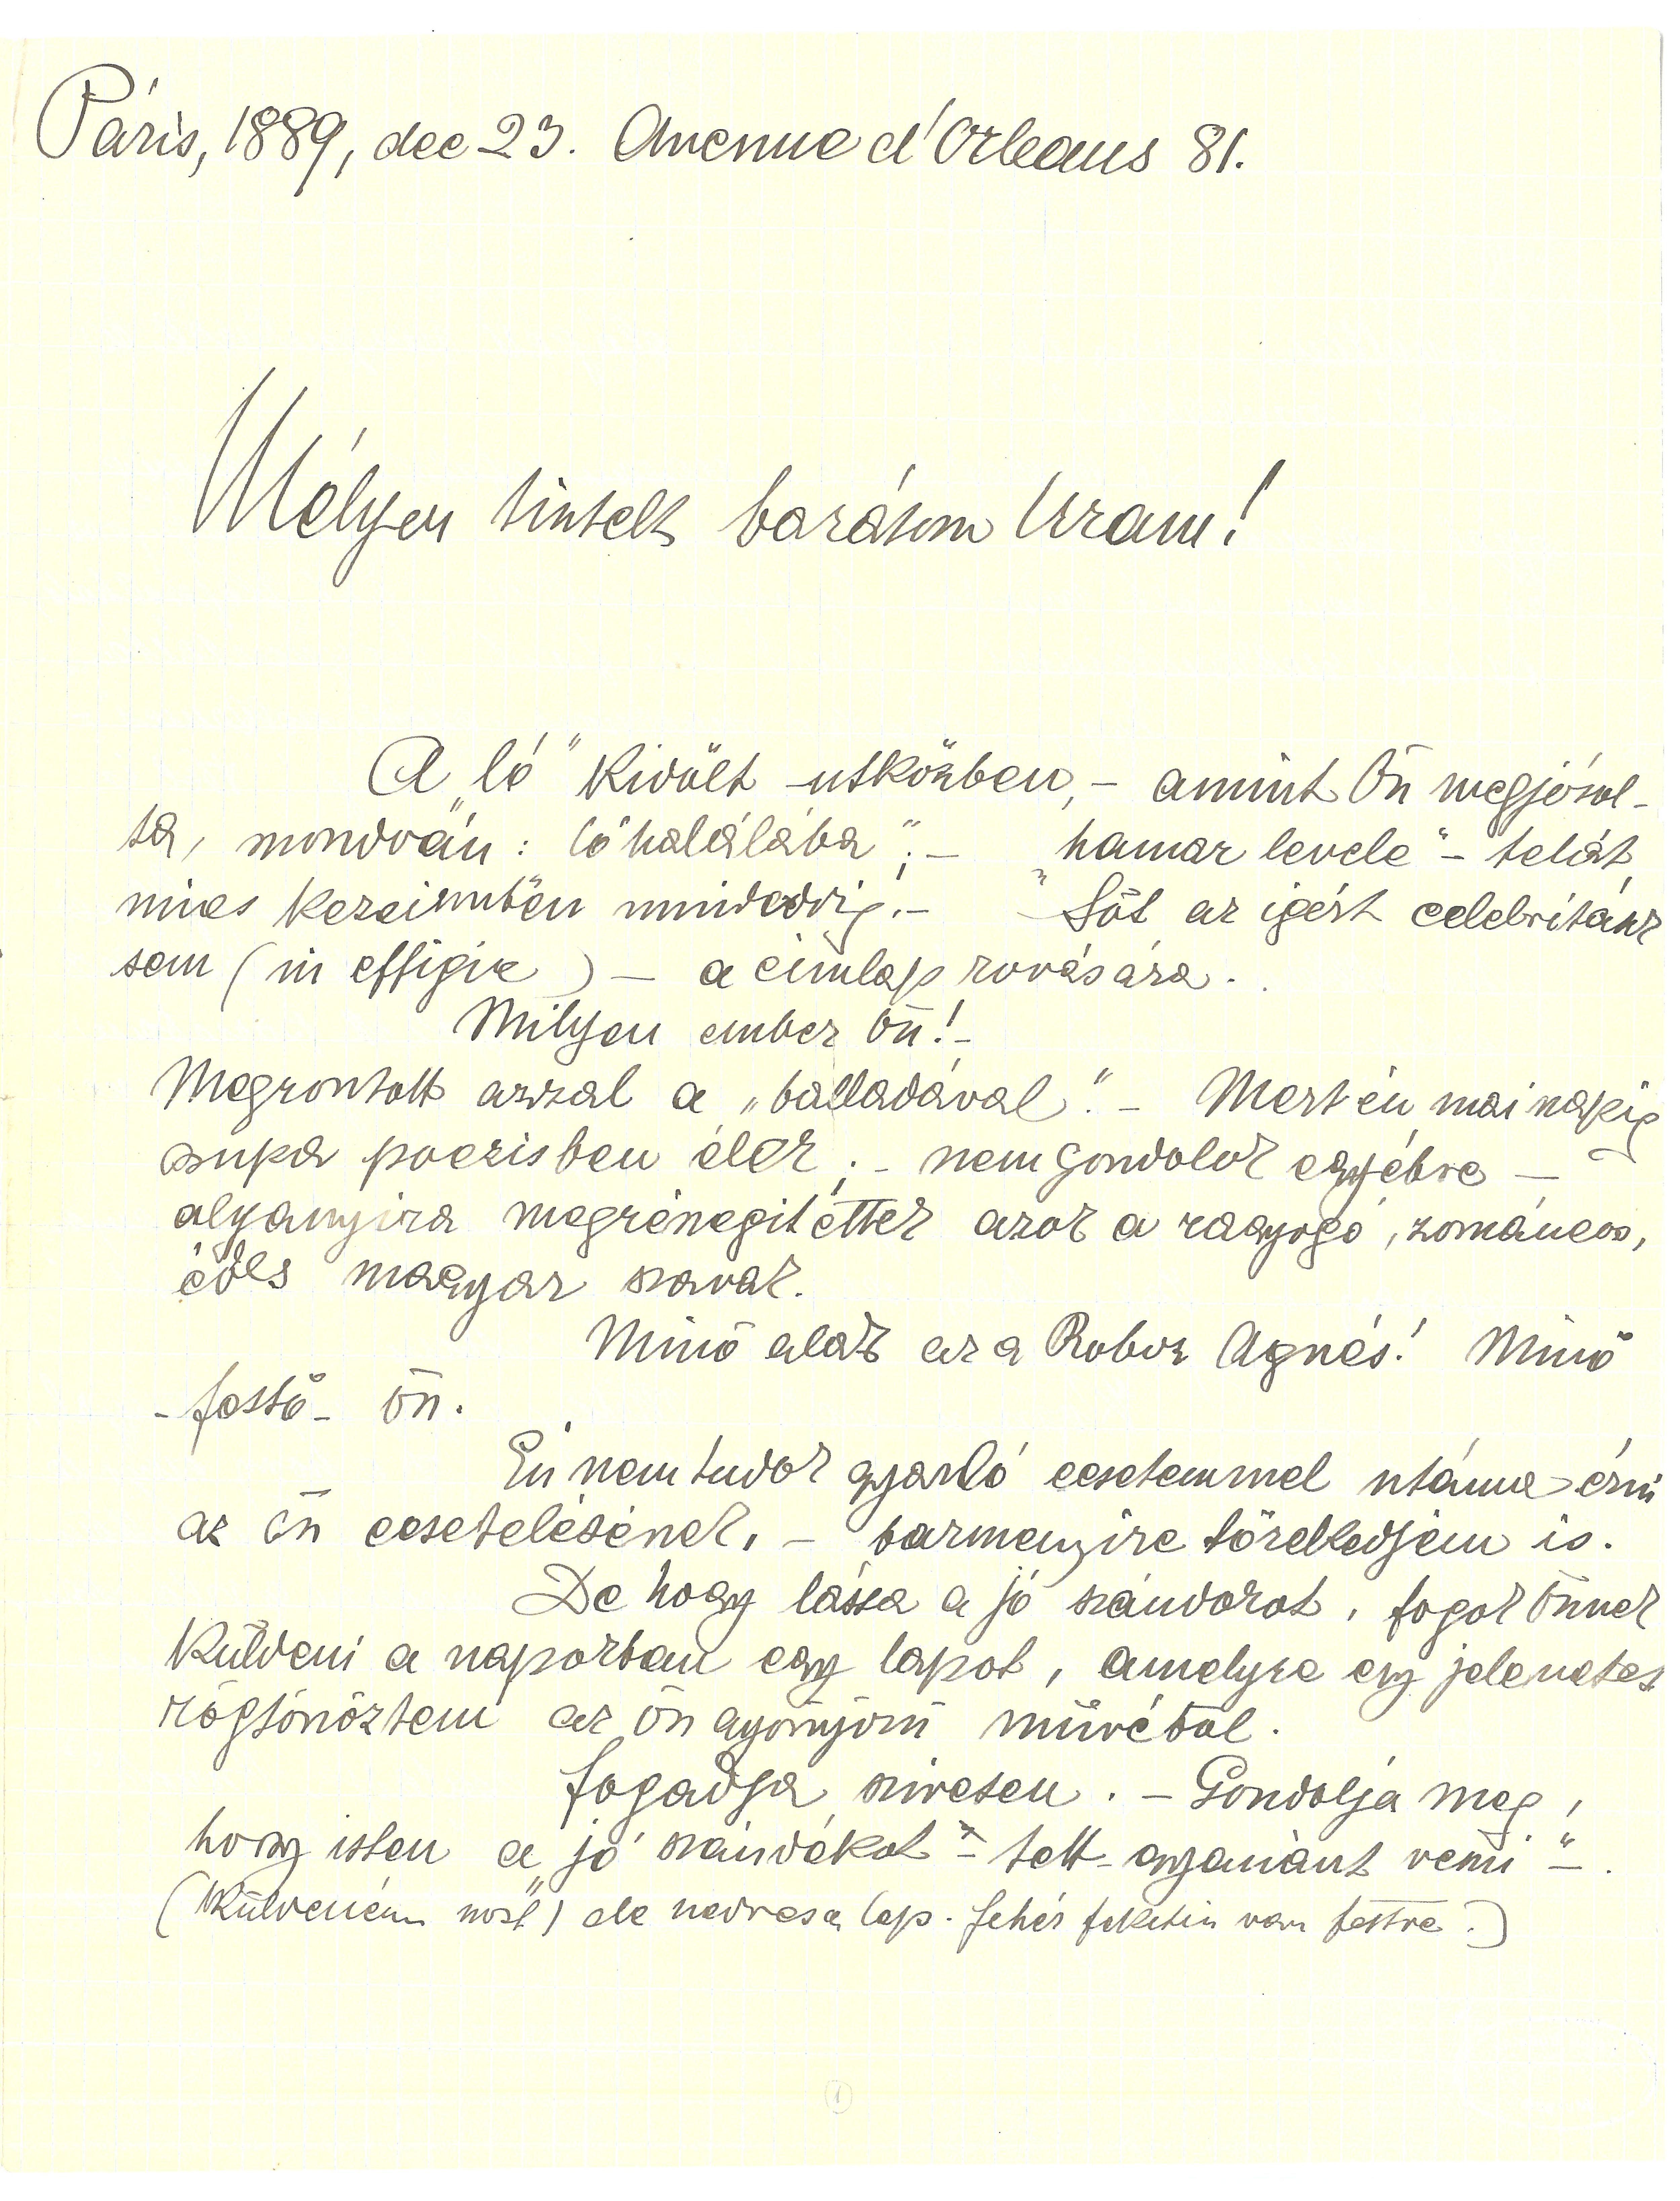 Páris, 1889, dec 23. Avenue d'Orleans 81.
Mélyen tisztelt barátom Uram!
A „ló" kidőlt útközben, – amint Ön megjósol-
ta, mondván: „ló halálába"; – „hamar levele" – tehát
nincs kezeimben mindeddig. – Sőt az igért celebritások
sem (in effigie) – a címlap rovására.
Milyen ember Ön! –
Megrontott azzal a „balladával". – Mert én mai napig
csupa poezisben élek; – nem gondolok egyébre –
alyanyira megrészegítettek azok a ragyogó, zománcos,
édes magyar szavak.
Minő alak az a Robor Ágnes! Minő
– festő – ön.
Én nem tudok gyarló ecsetemmel utánna érni
az ön ecsetelésének, – bármenyire törekedjem is.
De hogy lássa a jó szándokot, fogok Önnek
küldeni a napokban egy lapot, amelyre egy jelenetet
rögtönöztem az ön gyönyörű művéből.
Fogadja szívesen. – Gondolja meg,
hogy isten a „jó szándékot" – „tett gyanánt veszi" –.
(Küldeném most) de nedves a lap. fehér feketén van festve.)
1